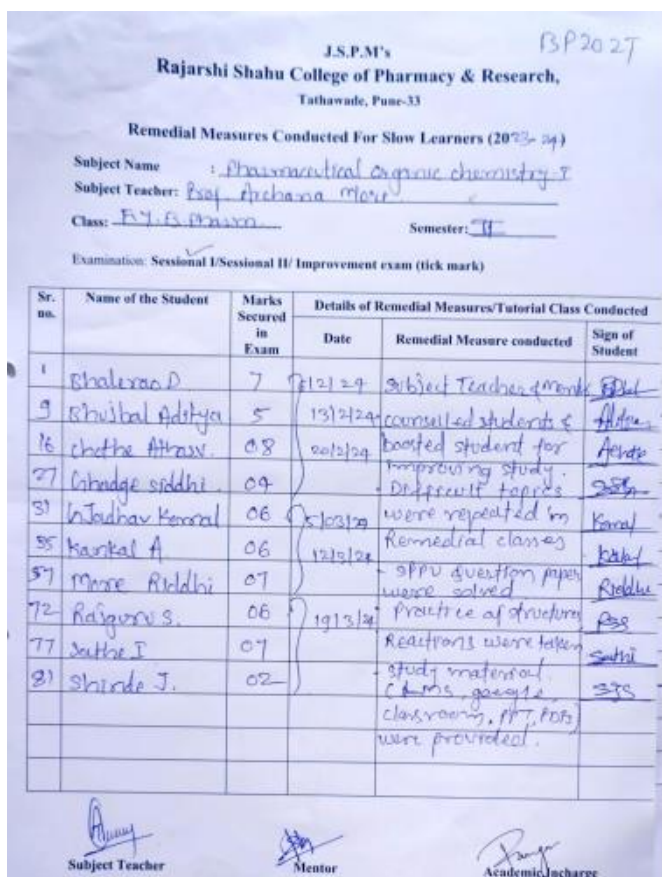 BP202T
J.S.P.M's
Rajarshi Shahu College of Pharmacy & Research,
Tathawade, Pune-33
Remedial Measures Conducted For Slow Learners (2023-24)
Subject Name : Pharmaceutical organic chemistry-I
Subject Teacher: Prof. Archana More
Class: F.Y.B.Pharm Semester: II
Examination: Sessional I/Sessional II/ Improvement exam (tick mark)
Sr. no. Name of the Student Marks Secured in Exam Details of Remedial Measures/Tutorial Class Conducted
Date Remedial Measure conducted Sign of Student
1 Bhalerao D 7 /2/24 subject Teacher &
9 Bhujbal Aditya 5 13/2/24 counselled students &
16 Chothe 08 20/2/24 boosted student for
improving study.
27 Ghadge siddhi 04 - Difficult topics
39 Jadhav 06 5/03/24 were repeated in
55 Kankal A. 06 12/3/24 Remedial classes
- SPPU question paper
57 More Riddhi 07 were solved Riddhi
72 Rajguru S. 06 19/3/24 - Practice of structures
77 Sathe I 07 Reactions were taken
81 Shinde J. 02 - study material
google
classroom, PPT, PDFs)
were provided.
Subject Teacher Mentor Academic Incharge